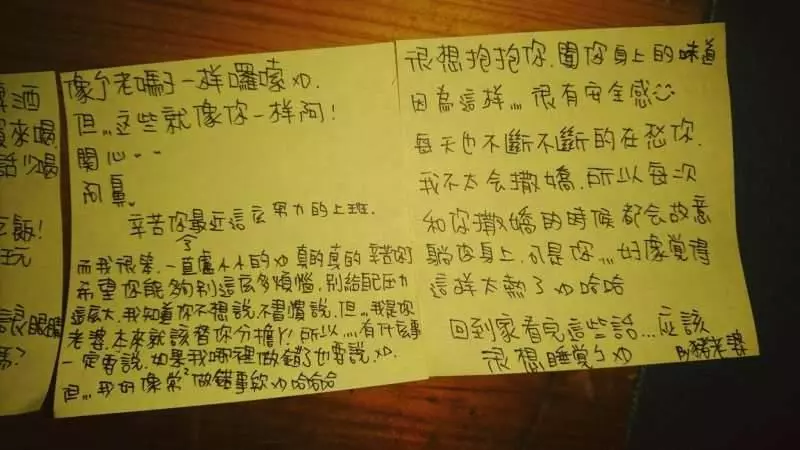 酒
來喝
話少喝
飯!
玩
眼睛
嗎?
像个老媽子一样囉嗦XD.
但,,,这些就像你一样阿!
関心..
阿鼻。
辛苦你最近這広努力的上班.
而我很笨.一直盧小小的XD真的真的辛苦你了
希望你能夠別這広多煩惱,別給自己压力
這広大,我知道你不想說,不習慣說,但,,,我是你
老婆.本來就該替你分擔丫!所以,,,,有什広事
一定要說.如果我哪裡做錯了也要說.XD.
但,,,我好像常²做錯事欸XD哈哈哈
很想抱抱你.聞你身上的味道
因為這样,,,,很有安全感
每天也不斷不斷的在愁你.
我不太会撒嬌,所以每次
和你撒嬌的時候都会故意
躺你身上.可是你,,,,好像覺得
這样太熱了XD哈哈
回到家看見這些話...应該
很想睡覺ㄅXD
By豬老婆